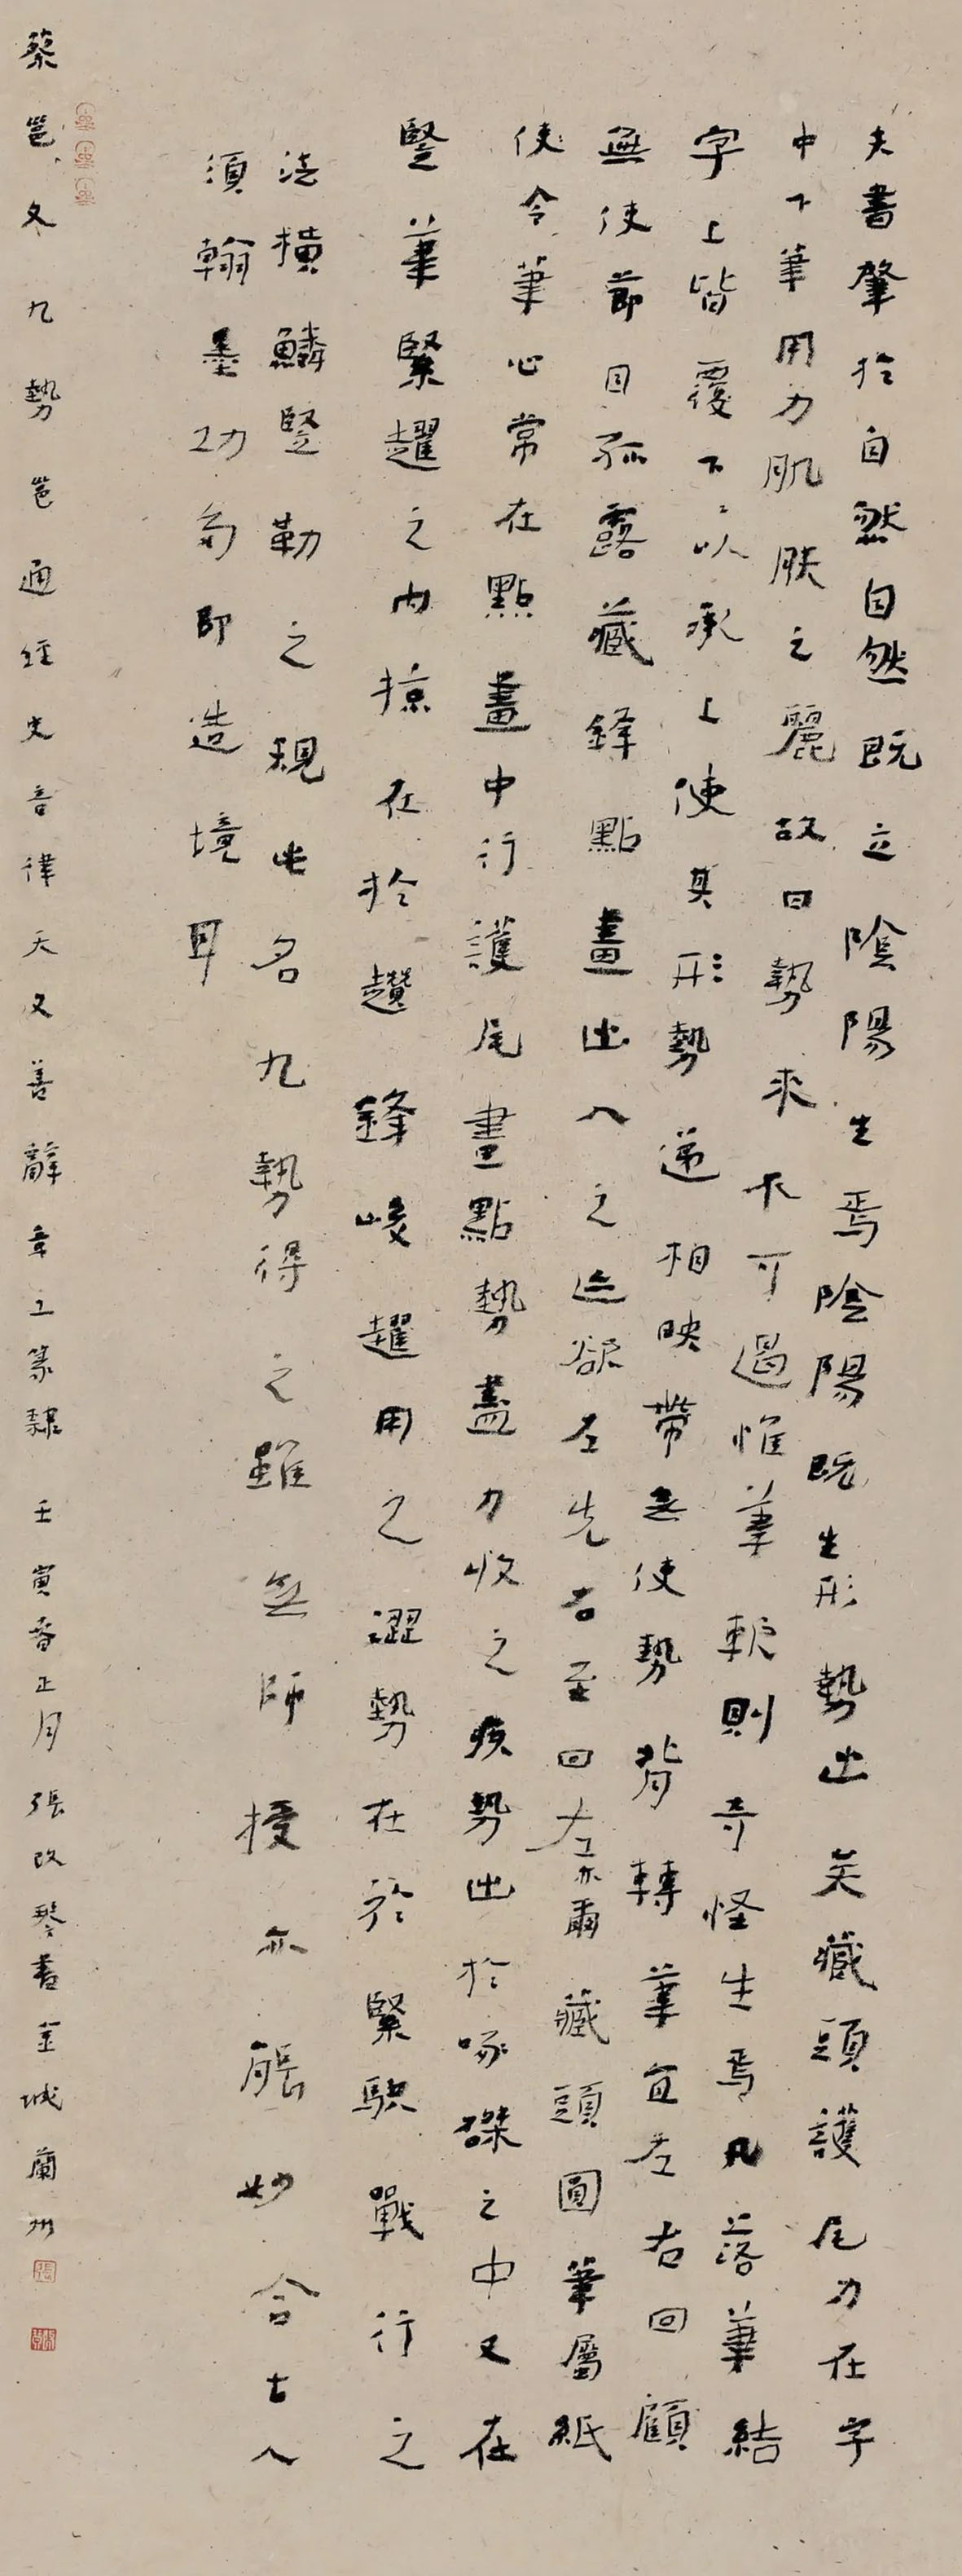 夫書肇於自然自然既立陰陽生焉陰陽既生形勢出矣藏頭護尾力在字
中下筆用力肌膚之麗故曰勢來不可遏惟筆軟則奇怪生焉凡落筆結
字上皆覆下下以承上使其形勢遞相映帶無使勢背轉筆宜左右回顧
無使節目孤露藏鋒點畫出入之迹欲左先右至回左亦爾藏頭圓筆屬紙
使令筆心常在點畫中行護尾畫點勢盡力收之疾勢出於啄磔之中又在
豎筆緊趯之內掠在於趲鋒峻趯用之澀勢在於緊駃戰行之
法橫鱗豎勒之規此名九勢得之雖無師授亦能妙合古人
須翰墨功多即造境耳
蔡邕九勢邕通經史音律天文善辭章工篆隸壬寅春正月張改琴書金城蘭州